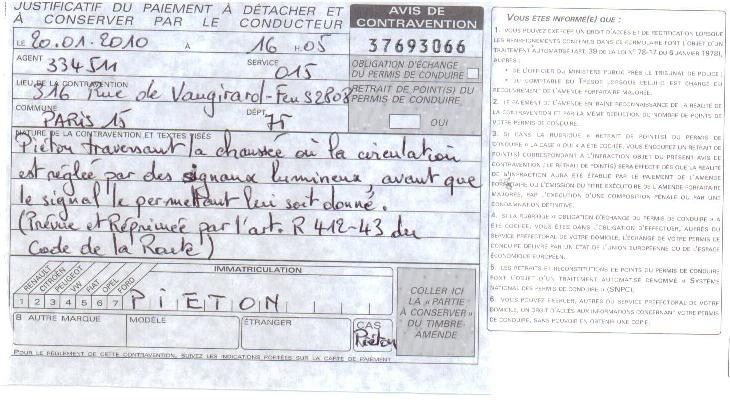 JUSTIFICATIF DU PAIEMENT À DÉTACHER ET
À CONSERVER PAR LE CONDUCTEUR
AVIS DE
CONTRAVENTION
37693066
LE 20.01.2010 À 16 H. 05
AGENT SERVICE
334511 015
OBLIGATION D'ÉCHANGE
DU PERMIS DE CONDUIRE
LIEU DE LA CONTRAVENTION
316 Rue de Vaugirard - Feu S2808
RETRAIT DE POINT(S) DU
PERMIS DE CONDUIRE
COMMUNE DÉPT
PARIS 15 75
OUI
NATURE DE LA CONTRAVENTION ET TEXTES VISÉS
Piéton traversant la chaussée où la circulation
est réglée par des signaux lumineux, avant que
le signal le permettant lui soit donné.
(Prévue et Réprimée par l'art. R 412-43 du
Code de la Route)
RENAULT CITROËN PEUGEOT VW FIAT OPEL FORD
IMMATRICULATION
1 2 3 4 5 6 7 PIETON
8 AUTRE MARQUE MODÈLE ÉTRANGER CAS
Piéton
COLLER ICI
LA « PARTIE
À CONSERVER »
DU TIMBRE-
AMENDE
POUR LE RÈGLEMENT DE CETTE CONTRAVENTION, SUIVEZ LES INDICATIONS PORTÉES SUR LA CARTE DE PAIEMENT
VOUS ÊTES INFORMÉ(E) QUE :
1. VOUS POUVEZ EXERCER UN DROIT D'ACCÈS ET DE RECTIFICATION LORSQUE
LES RENSEIGNEMENTS CONTENUS DANS CE FORMULAIRE FONT L'OBJET D'UN
TRAITEMENT AUTOMATISÉ (ART. 39 DE LA LOI N° 78-17 DU 6 JANVIER 1978),
AUPRÈS :
• DE L'OFFICIER DU MINISTÈRE PUBLIC PRÈS LE TRIBUNAL DE POLICE ;
• DU COMPTABLE DU TRÉSOR LORSQUE CELUI-CI EST CHARGÉ DU
RECOUVREMENT DE L'AMENDE FORFAITAIRE MAJORÉE.
2. LE PAIEMENT DE L'AMENDE ENTRAÎNE RECONNAISSANCE DE LA RÉALITÉ DE
LA CONTRAVENTION ET PAR LÀ MÊME RÉDUCTION DU NOMBRE DE POINTS DE
VOTRE PERMIS DE CONDUIRE.
3. SI DANS LA RUBRIQUE « RETRAIT DE POINT(S) DU PERMIS DE
CONDUIRE » LA CASE « OUI » A ÉTÉ COCHÉE, VOUS ENCOUREZ UN RETRAIT DE
POINT(S) CORRESPONDANT À L'INFRACTION OBJET DU PRÉSENT AVIS DE
CONTRAVENTION. LE RETRAIT DE POINT(S) SERA EFFECTIF DÈS QUE LA RÉALITÉ
DE L'INFRACTION AURA ÉTÉ ÉTABLIE PAR LE PAIEMENT DE L'AMENDE
FORFAITAIRE OU L'ÉMISSION DU TITRE EXÉCUTOIRE DE L'AMENDE FORFAITAIRE
MAJORÉE, PAR L'EXÉCUTION D'UNE COMPOSITION PÉNALE OU PAR UNE
CONDAMNATION DÉFINITIVE.
4. SI LA RUBRIQUE « OBLIGATION D'ÉCHANGE DU PERMIS DE CONDUIRE » A
ÉTÉ COCHÉE, VOUS ÊTES DANS L'OBLIGATION D'EFFECTUER, AUPRÈS DU
SERVICE PRÉFECTORAL DE VOTRE DOMICILE, L'ÉCHANGE DE VOTRE PERMIS DE
CONDUIRE DÉLIVRÉ PAR UN ÉTAT DE L'UNION EUROPÉENNE OU DE L'ESPACE
ÉCONOMIQUE EUROPÉEN.
5. LES RETRAITS ET RECONSTITUTIONS DE POINTS DU PERMIS DE CONDUIRE
FONT L'OBJET D'UN TRAITEMENT AUTOMATISÉ DÉNOMMÉ « SYSTÈME
NATIONAL DES PERMIS DE CONDUIRE » (SNPC).
6. VOUS POUVEZ EXERCER, AUPRÈS DU SERVICE PRÉFECTORAL DE VOTRE
DOMICILE, UN DROIT D'ACCÈS AUX INFORMATIONS CONCERNANT VOTRE PERMIS
DE CONDUIRE, SANS POUVOIR EN OBTENIR UNE COPIE.